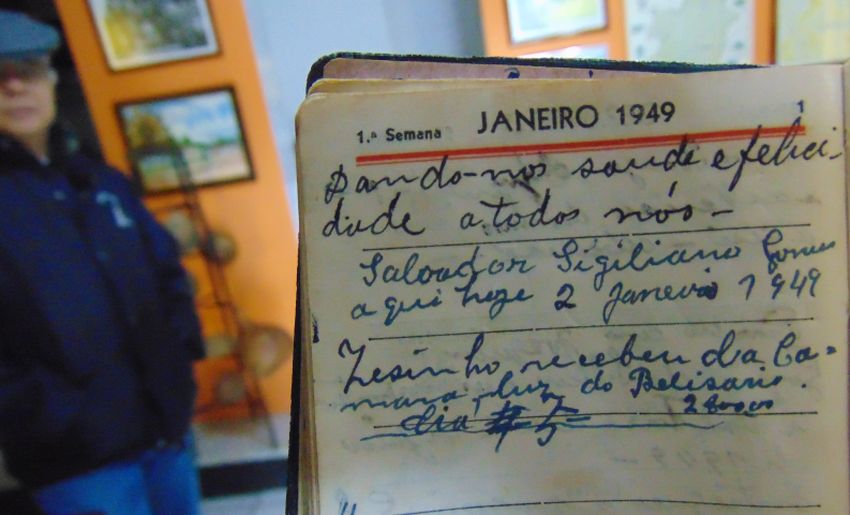 1.ª Semana JANEIRO 1949 1
Dando-nos saude e felici-
dade a todos nós-
Salvador Sigiliano Gomes
aqui hoje 2 Janeiro 1949
Zesinho recebeu da Ca-
mara, luz do Belisario.
28000
dia 5